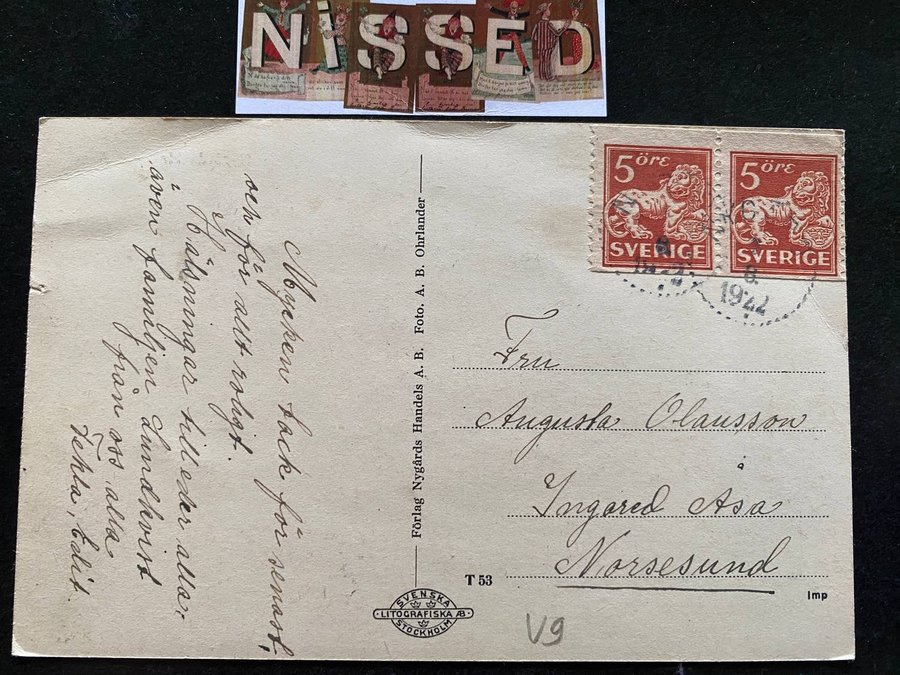 NISSED
Mycken tack för senast,
och för allt roligt.
Hälsningar till eder alla,
även familjen Lundkvist
från oss alla
Tekla, Edit.
Förlag Nygårds Handels A. B. Foto. A. B. Ohrlander
SVENSKA
LITOGRAFISKA AB
STOCKHOLM
T 53
5 öre
SVERIGE
5 öre
SVERIGE
8
1922
Fru
Augusta Olausson
Ingared Åsa
Norsesund
Imp
V9